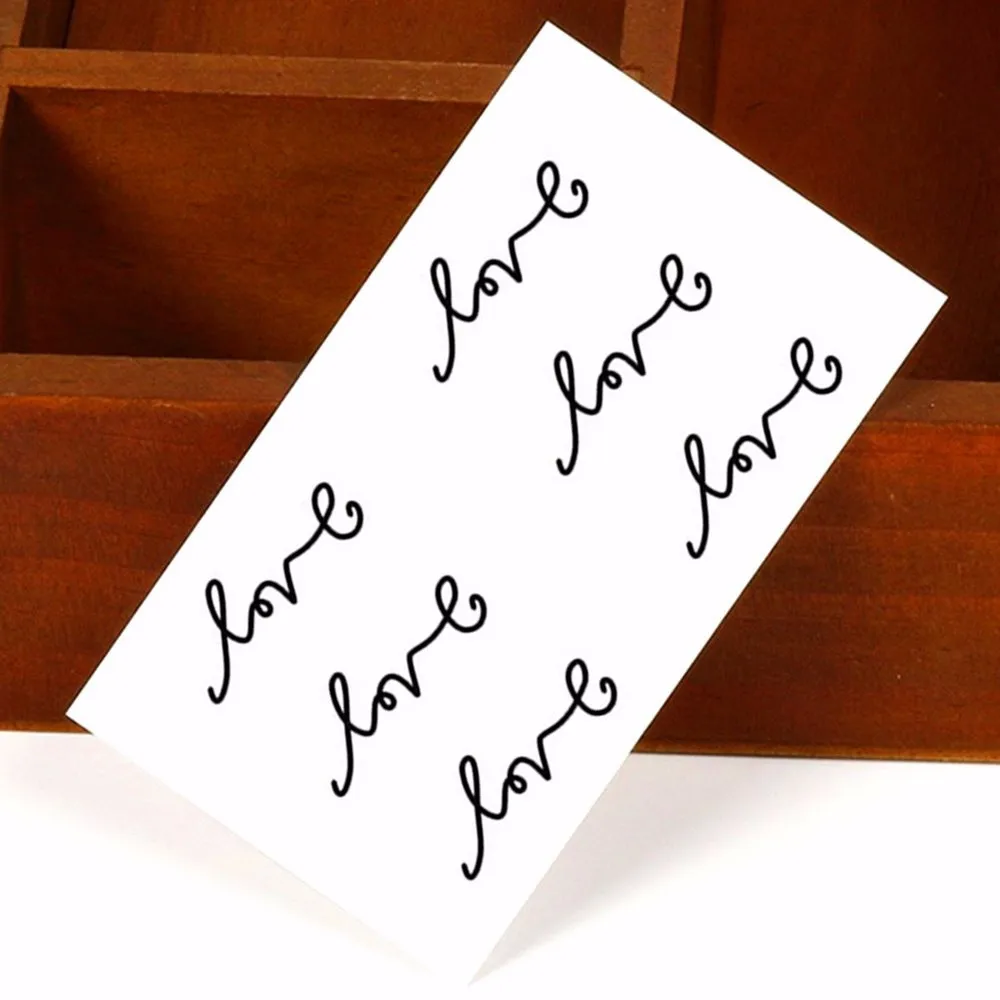 love
love
love
love
love
love